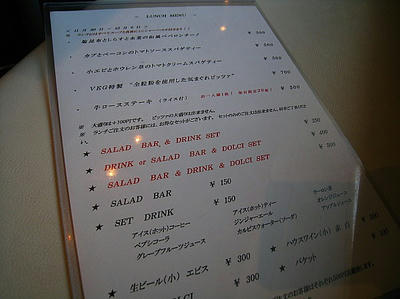 LUNCH MENU
・ 塩昆布としらすと水菜の和風ペペロンチーノ ¥ 500
・ カブとベーコンのトマトソーススパゲティー ¥ 500
・ 小エビとホウレン草のトマトクリームスパゲティー ¥ 500
・ VKG特製 "全粒粉を使用した気まぐれピッツァ" ¥ 700
・ 牛ロースステーキ (ライス付) ¥ 500
※ 大盛りは+100円です。 ピッツァの大盛りは出来ません。
★ SALAD BAR & DRINK SET ¥ 250
★ DRINK or SALAD BAR & DOLCI SET ¥ 400
★ SALAD BAR & DRINK & DOLCI SET
★ SALAD BAR ¥ 150
★ SET DRINK ¥ 150
アイス(ホット)コーヒー アイス(ホット)ティー ウーロン茶
ペプシコーラ ジンジャーエール オレンジジュース
グレープフルーツジュース カルピスウォーター(ソーダ) アップルジュース
★ 生ビール(小) エビス ¥ 300 ★ ハウスワイン(小) 赤 白 ¥ 300
¥ 300 ★ バケット